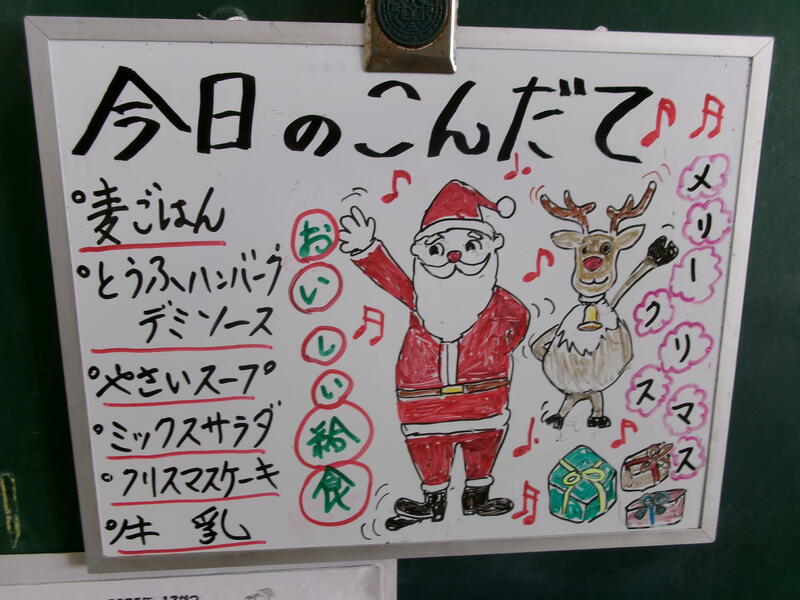 今日のこんだて
麦ごはん
とうふハンバーグ
デミソース
やさいスープ
ミックスサラダ
クリスマスケーキ
牛乳
おいしい給食
メリークリスマス